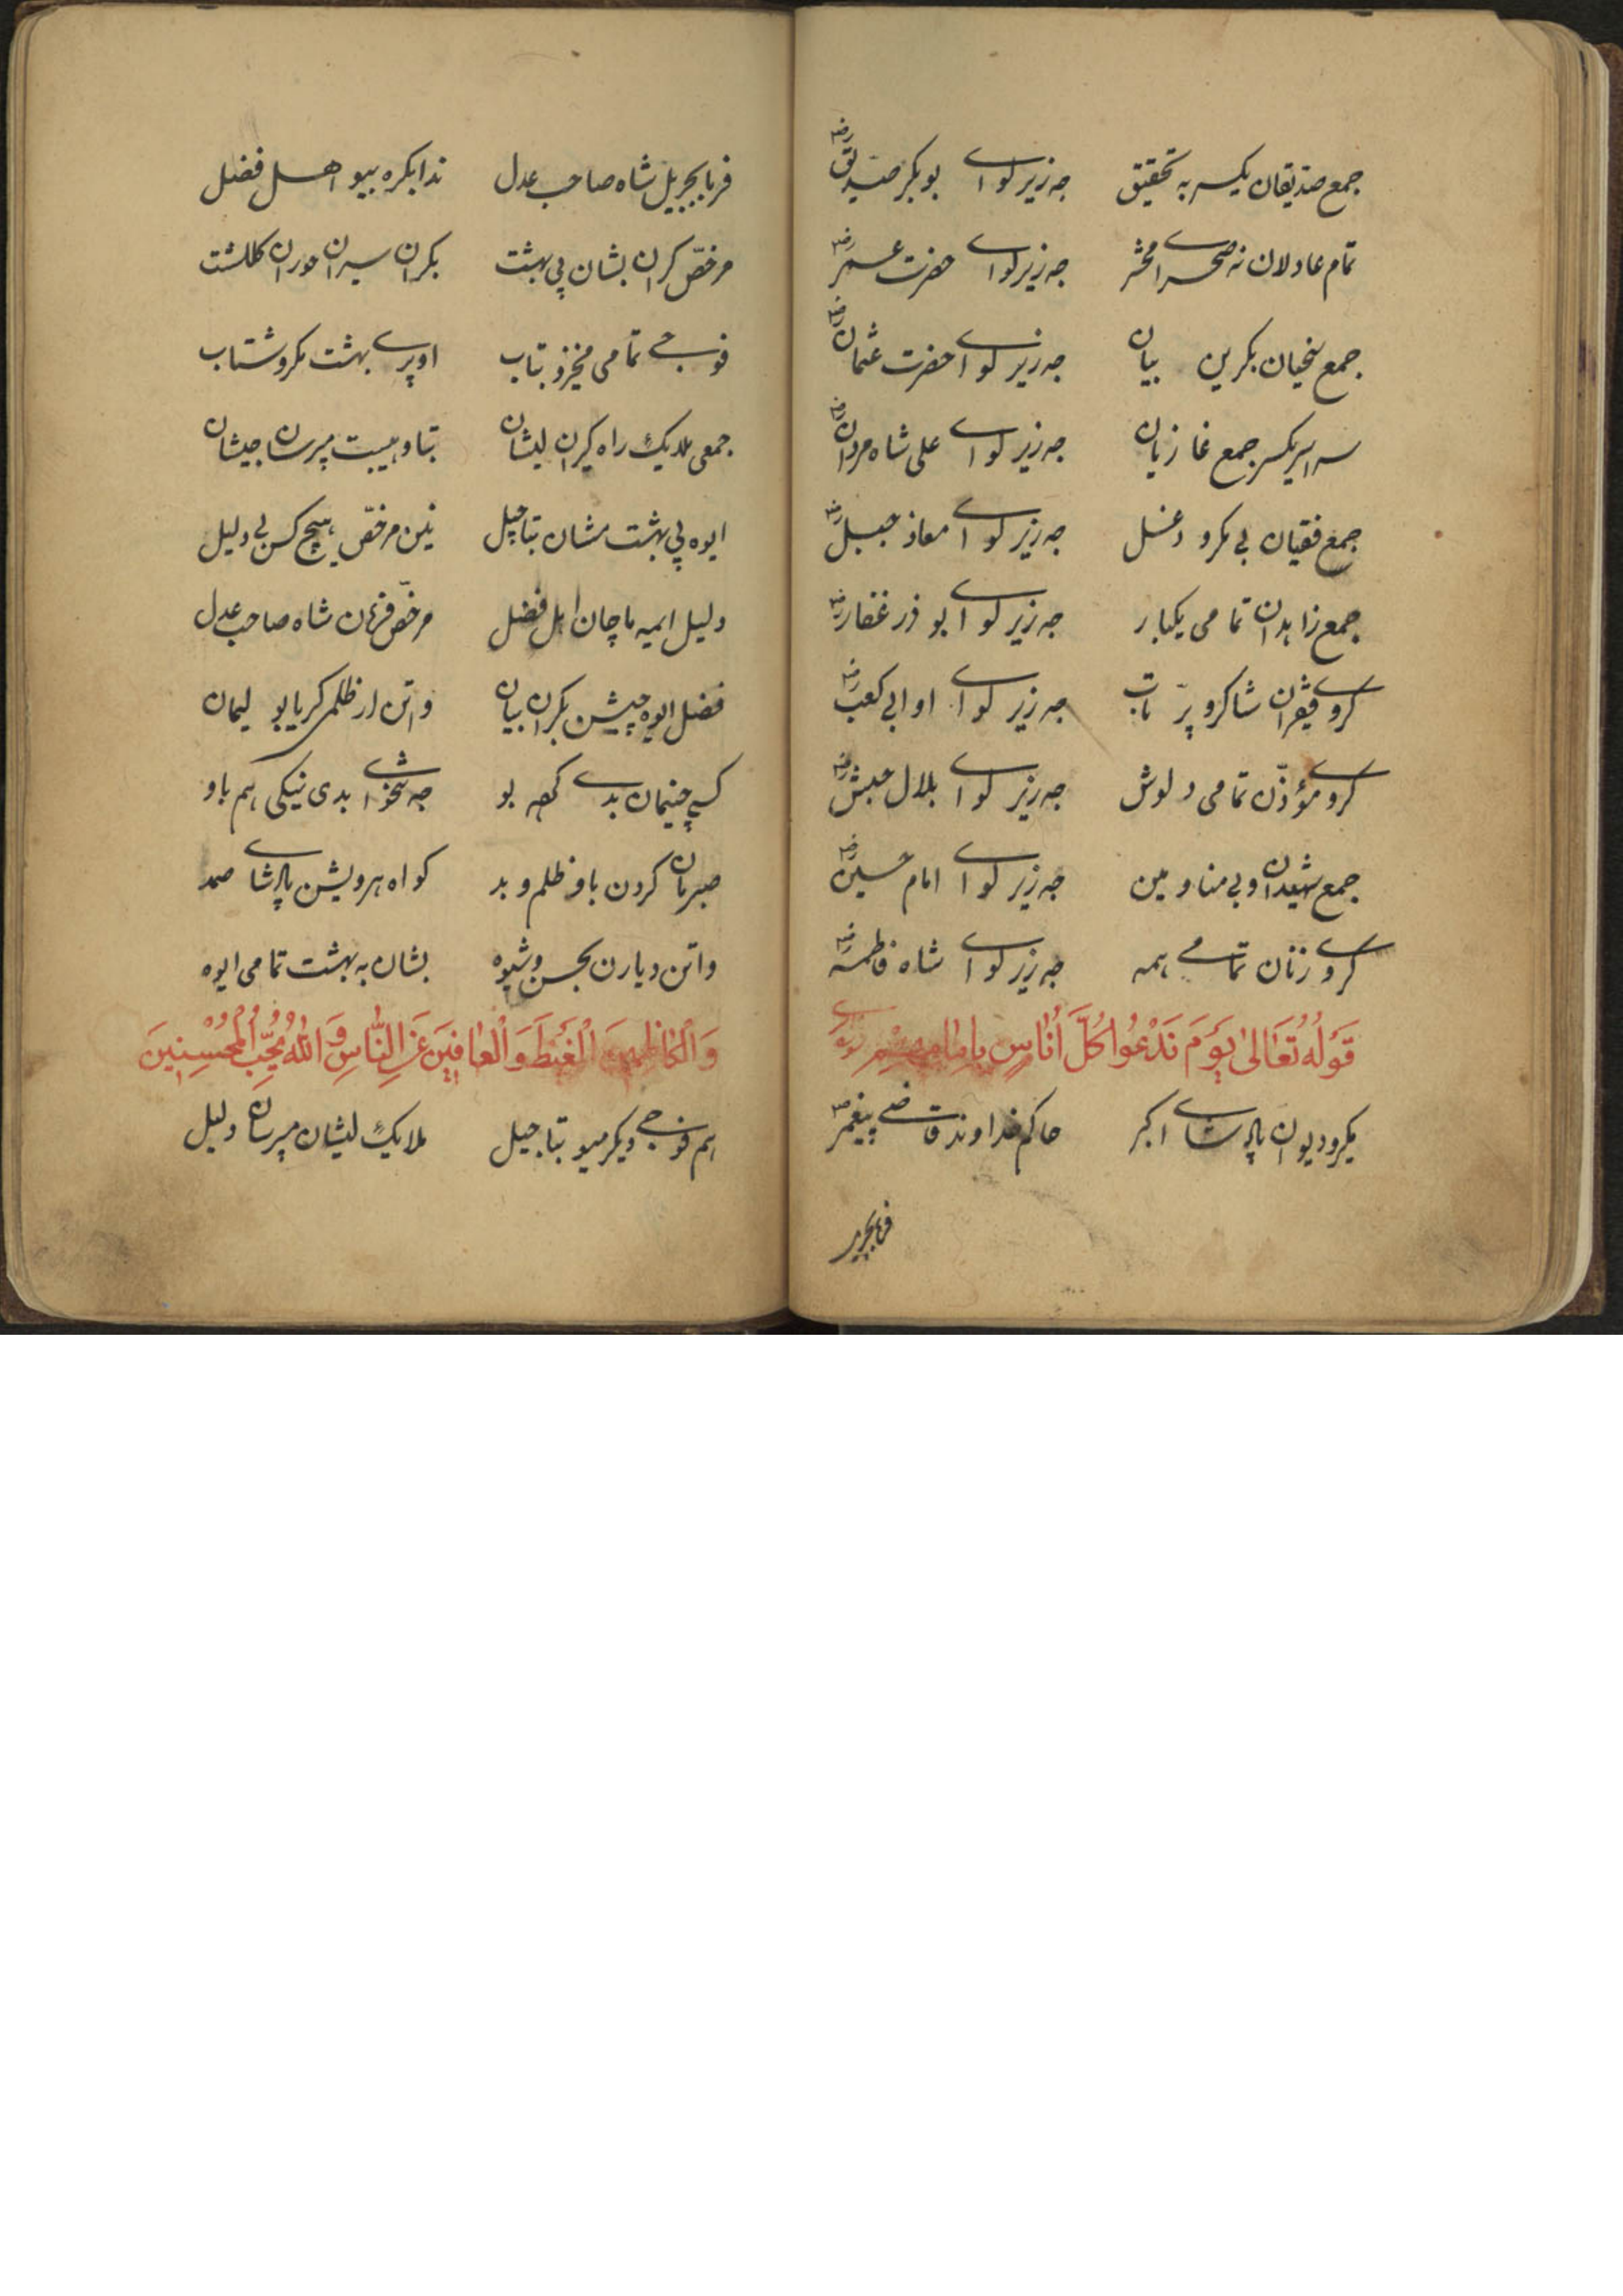 جمع صدیقان یکسر به تحقیق جه زیر لوای بو بکر صدیق رضه
تمام عادلان نه صحرای محشر جه زیر لوای حضرت عمر رضه
جمع سخیان بکرین بیان جه زیر لوای حضرت عثمان رضه
سراسر یکسر جمع غازیان جه زیر لوای علی شاه مردان رضه
جمع فقیان بی مکر و دغل جه زیر لوای معاذ جبل رضه
جمع زاهدان تمامی یکبار جه زیر لوای ابو ذر غفار رضه
کروی فقیران شاکر و پر تاب جه زیر لوای او ابی کعب رضه
کروی مؤذن تمامی دلوش جه زیر لوای بلال حبش رضه
جمع شهیدان وبی منا و مین جه زیر لوای امام حسین رضه
کروی زنان تمامی همه جه زیر لوای شاه فاطمه رضه
قَوْلُهُ تَعَالىٰ يَوْمَ نَدْعُوا كُلَّ أُنَاسٍ بِإِمَامِهِمْ
یکرو دیوان پادشای اکبر حاکم خداوند قاضی پیغمبر
فرما بجبریل
فرما بجبریل شاه صاحب عدل ندا بکره بیو اهل فضل
مرخص کران بشان پی بهشت بکران سیران حوران کلکشت
فوجی تمامی مخیزو بتاب او پری بهشت مکرو شتاب
جمعی ملایک راه کیران لیشان بتاو هیبت مپرسان جیشان
ایوه پی بهشت مشان بتاجیل نین مرخص هیچ کس بی دلیل
دلیل ایمه ماچان اهل فضل مرخص فرمان شاه صاحب عدل
فضل ایوه چیشن بکران بیان واتن ار ظلمی کریا بو لیمان
کسی چنیمان بدی کهه بو جه شخوای بدی نیکی هم باو
صبرمان کردن باو ظلم و بد کواه هر ویشن پادشای صمد
واتن دیارن بحسن و شیوه بشان به بهشت تمامی ایوه
وَالْكَاظِمِينَ الْغَيْظَ وَالْعَافِينَ عَنِ النَّاسِ وَاللهُ يُحِبُّ الْمُحْسِنِينَ
هم فوجی دیکر میو بتاجیل ملایک لیشان مپرسان دلیل